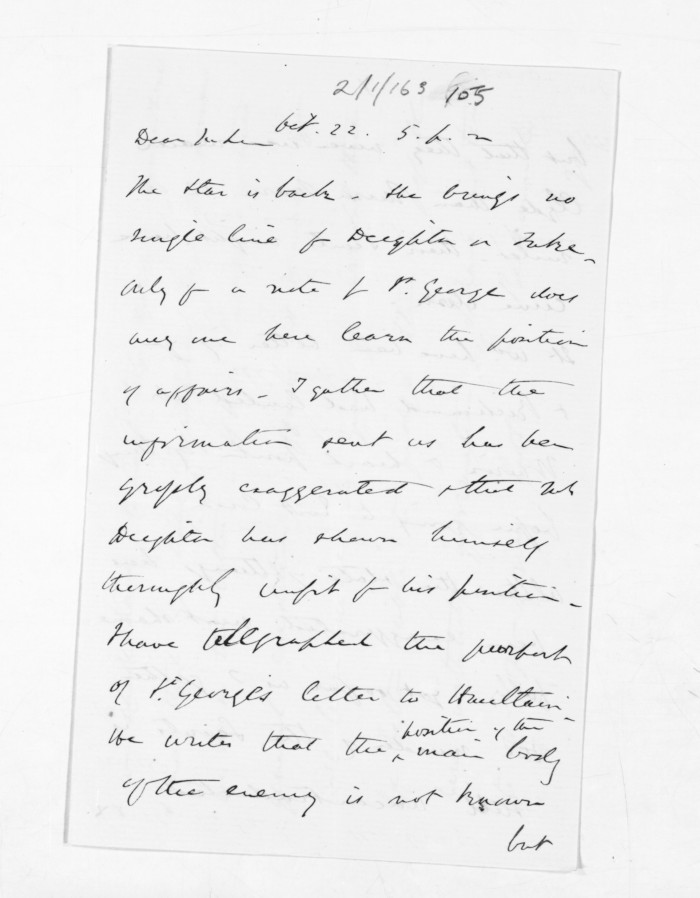 2/1/163 105
Oct. 22. 5. p. m
Dear McLean
The Star is back. She brings no
single line f Deighton or Tuke -
only f a note f St. George does
any one here learn the position
of affairs - I gather that the
information sent us has been
grossly exaggerated & that Mr
Deighton has shown himself
thoroughly unfit for his position -
I have telegraphed the purport
of St. George's letter to Haultain -
He writes that the position of the main body
of the enemy is not known
but